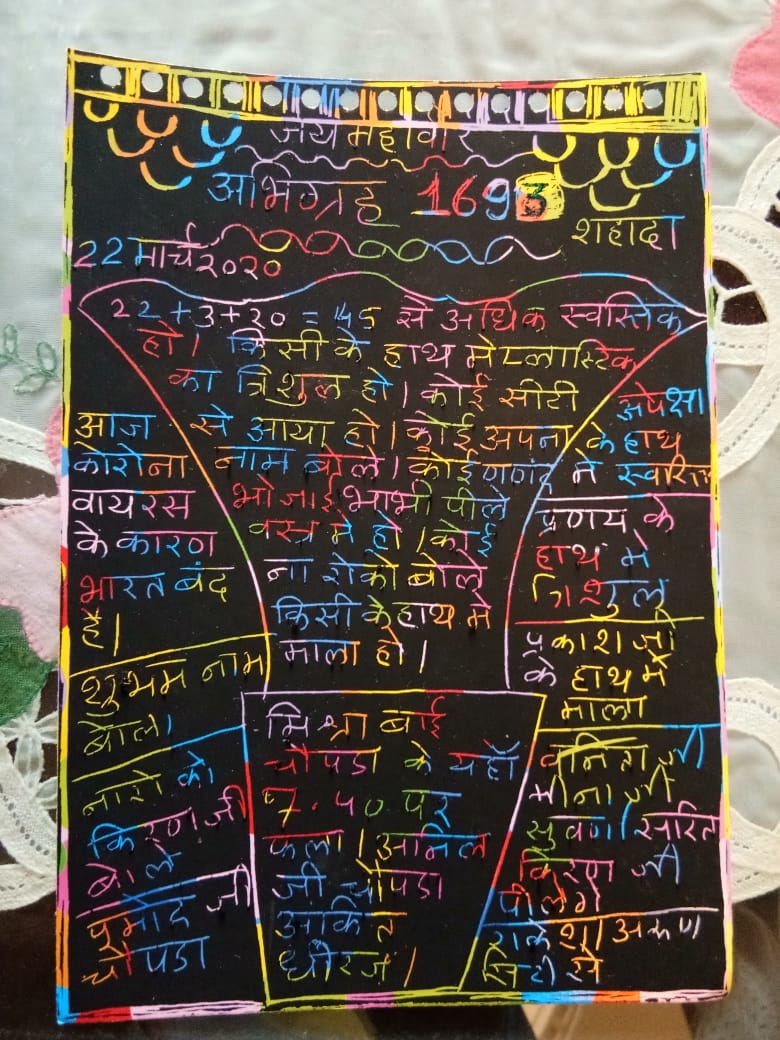 जय महावीर
अभिग्रह 1693
शहादा
22 मार्च २०२०
22+3+20 = 45 से अधिक स्वस्तिक
हो। किसी के हाथ मे प्लास्टिक
का त्रिशुल हो। कोई सीटी
से आया हो। कोई अपना
नाम बोले। कोई
भोजाई भाभी पीले
वस्त्र मे हो। कोई
ना रोको बोले
किसी के हाथ मे
माला हो।
आज
कोरोना
वायरस
के कारण
भारत बंद
है।
शुभम नाम
बोला
नारो को
किरण जी
बोले
प्रमोद जी
चौपडा
मिश्रा बाई
चौपडा के यहाँ
7.40 पर
फला। अनिल
जी चौपडा
अंकित
धीरज।
अपेक्षा
के हाथ
मे
प्रणय के
हाथ मे
त्रिशुल
प्रकाश जी
के हाथ मे
माला
वनिता जी
मीना जी
सुवर्णा सरिता
किरण जी
राकेश। अरुण
सिटी से